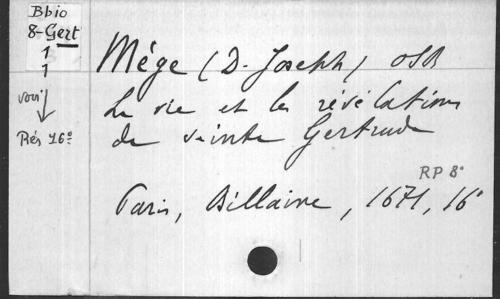 Bbio
8-Gert
1
1
voir
Rés 16°
Mége (D. Joseph) OSB
La vie et les révélations
de sainte Gertrude
RP 8°
Paris, Billaine, 1671, 16°